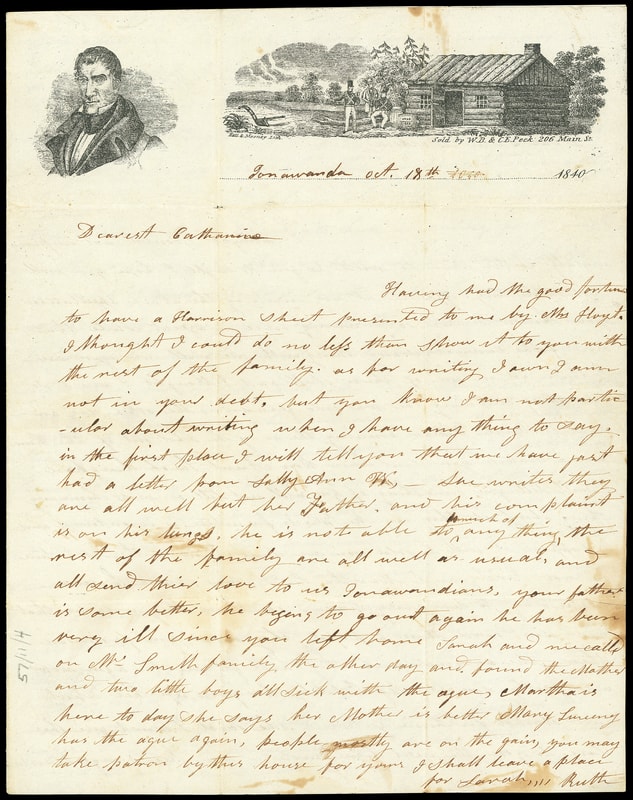 Sold by W.B. & C.E. Peck 206 Main St.
Tonawanda Oct. 18th 1840
Dearest Catharine
Having had the good fortune
to have a Harrison sheet presented to me by Mrs Hoyt.
I thought I could do no less than show it to you with
the rest of the family. as for writing I own I am
not in your debt, but you know I am not partic
-ular about writing when I have any thing to say.
in the first place I will tell you that we have just
had a letter from Sally Ann W, — she writes they
are all well but her Father. and his complaint
is on his lungs. he is not able to much of any thing, the
rest of the family are all well as usual, and
all send thier love to us Tonawandians, your father
is some better, he begins to go out again he has been
very ill since you left home Sarah and me called
on Mr Smith family the other day and found the Mother
and two little boys all sick with the ague, Martha is
here to day she says her Mother is better Mary
has the ague again, people mostly are on the gain, you may
take patron by this house for yours I shall leave a place
for Sarah,,,, Ruth
57/11/H